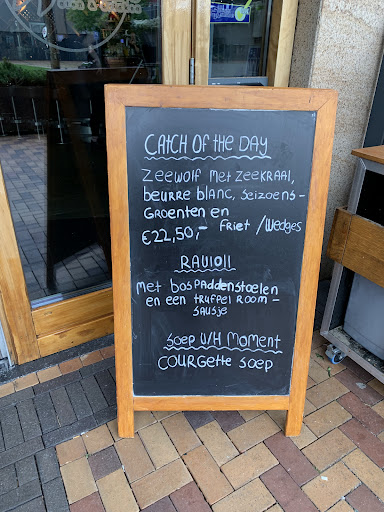 CATCH OF THE DAY
Zeewolf met zeekraal,
beurre blanc, seizoens-
Groenten en
€22,50,- Friet /Wedges
RAVIOLI
met bospaddenstoelen
en een truffel room-
sausje
Soep V/H moment
COURGETTE SOEP